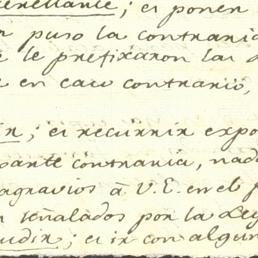 ; es poner
puso la contraria
le prefixaron las
en caso contrario,
; es recurrir expo
parte contraria, nad
agravios á V. E. en el p
señalados por la Ley
udir; es ir con algun